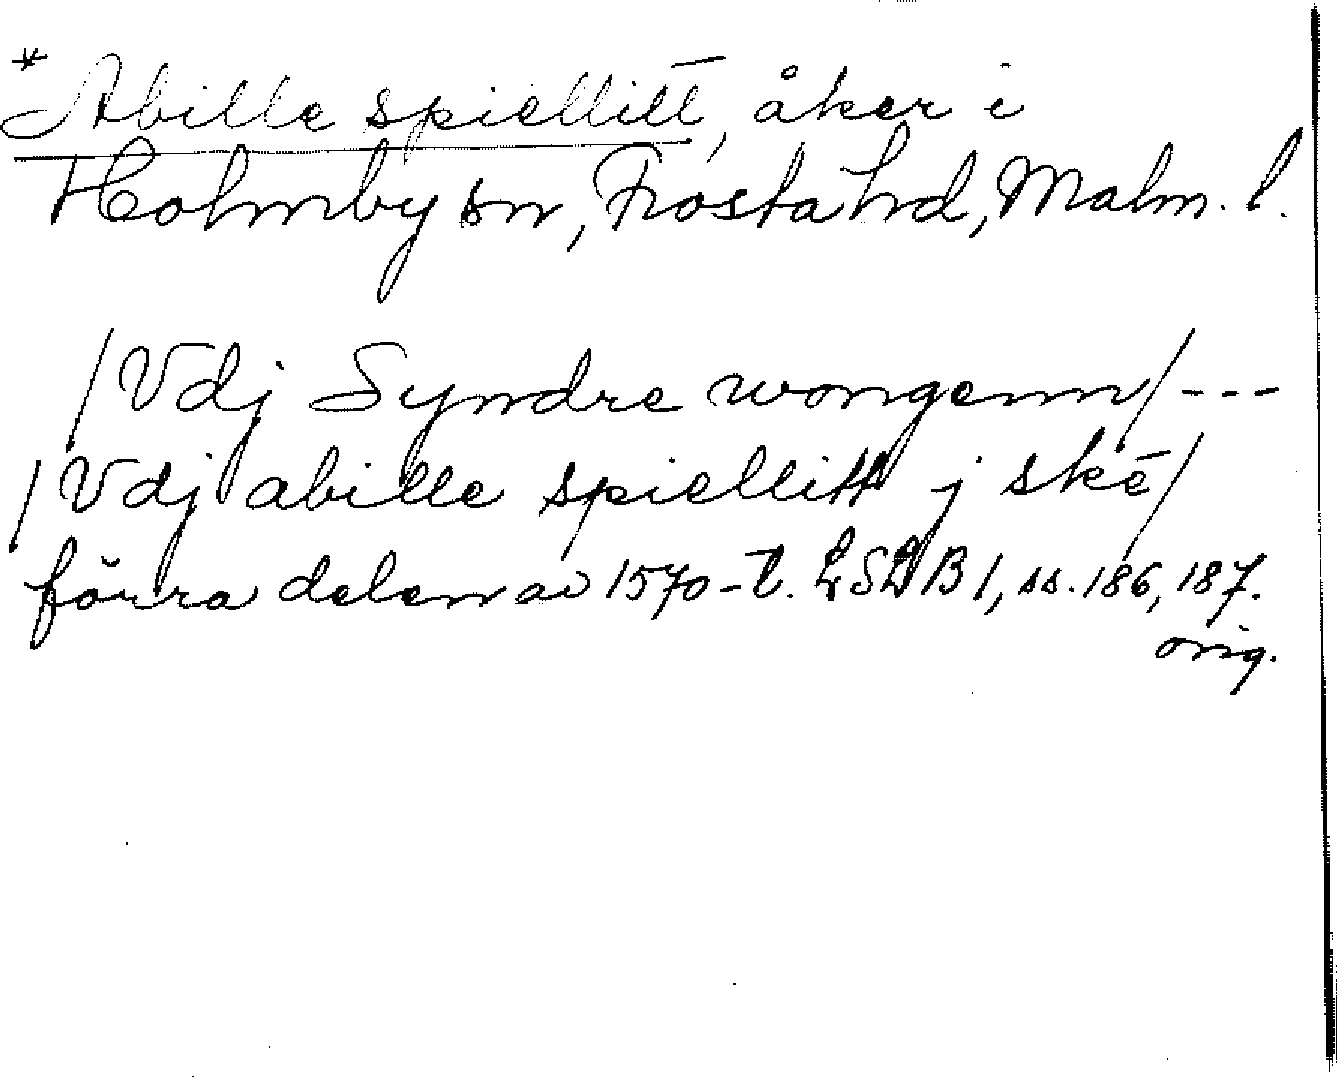 * Abille spiellitt, åker i
Holmby sn, Frosta hd, Malm. l.
/Vdj Syndre wongenn/---
/Vdj abille spiellitt j skē/
förra delen av 1570-t. LSDB 1, ss. 186, 187.
orig.